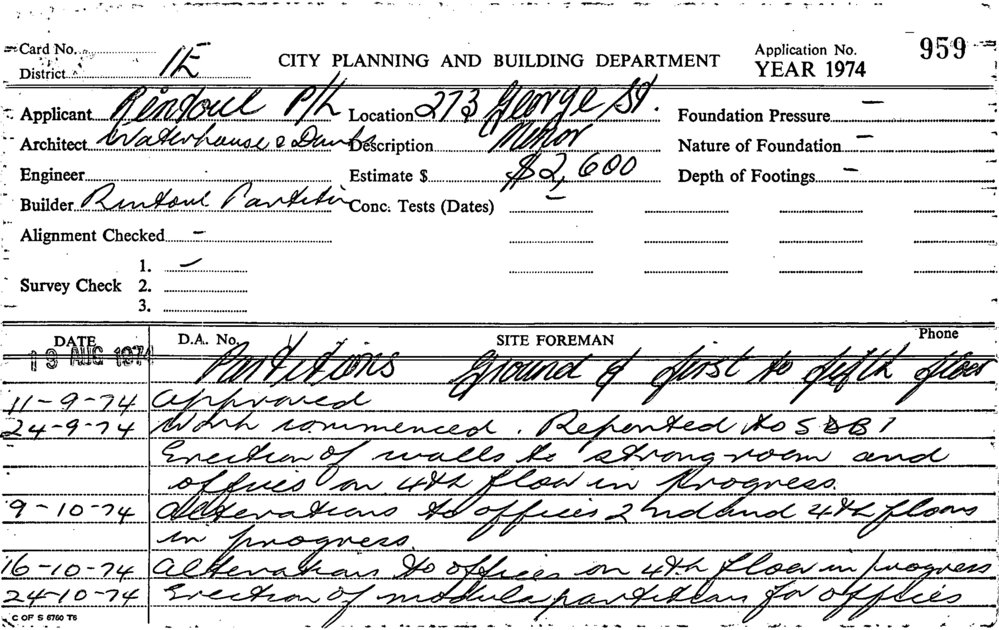 Card No.
District 1E
CITY PLANNING AND BUILDING DEPARTMENT
Application No. 959
YEAR 1974
Applicant Rintoul P/L Location 273 George St. Foundation Pressure –
Architect Waterhouse & Description Minor Nature of Foundation –
Engineer Estimate $ $2,600 Depth of Footings –
Builder Rintoul Conc. Tests (Dates) –
Alignment Checked –
Survey Check 1. –
2.
3.
DATE D.A. No. SITE FOREMAN Phone
19 AUG 1974 Partitions Ground & first to fifth floor
11-9-74 Approved
24-9-74 Work commenced. Reported to SDBI
Erection of walls to strongroom and
offices on 4th floor in progress.
9-10-74 Alterations to offices 2nd and 4th floors
in progress.
16-10-74 Alterations to offices on 4th floor in progress
24-10-74 Erection of modula partitions for offices
C OF S 6760 T6